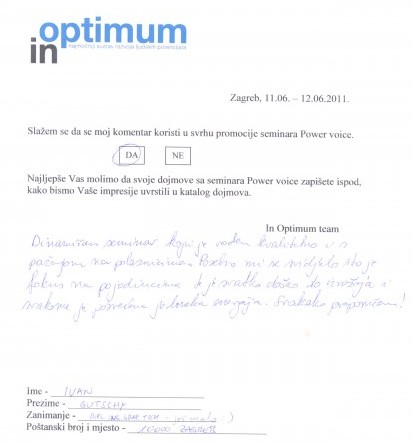 in optimum
Zagreb, 11.06. – 12.06.2011.
Slažem se da se moj komentar koristi u svrhu promocije seminara Power voice.
DA NE
Najljepše Vas molimo da svoje dojmove sa seminara Power voice zapišete ispod,
kako bismo Vaše impresije uvrstili u katalog dojmova.
In Optimum team
Dinamičan seminar koji je vođen kvalitetno u s
pažnjom na polaznicima. Posebno mi se svidjelo što je
fokus na pojedincima te je svatko došao do izražaja i
svakome je posvećena je energija. Svakako preporučam!
Ime - IVAN
Prezime - GUTSCHY
Zanimanje -
Poštanski broj i mjesto - 10000 ZAGREB